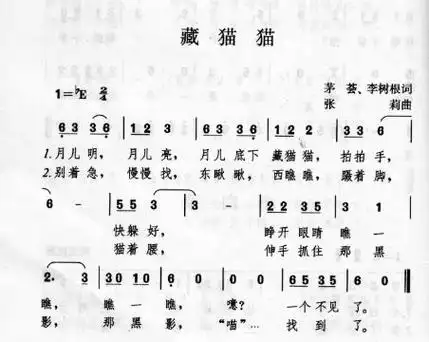 藏猫猫
茅荟、李树根词
1=♭E 2/4 张 莉曲
6 3 3 6 | 1 2 3 | 6 3 3 6 | 1 2 2 | 3 3 6 |
1.月儿明， 月儿亮， 月儿底下 藏猫猫， 拍拍手，
2.别着急， 慢慢找， 东瞅瞅， 西瞧瞧， 蹑着脚，
6 - | 5 5 3 | 3 - | 2 2 3 5 | 3 1 |
快躲好， 睁开眼睛 瞧一
猫着腰， 伸手抓住 那黑
2. 3 | 30 10 | 6 0 | 0 0 | 65 35 | 6 0 ‖
瞧， 瞧一瞧， 噫？ 一个不见了。
影， 那黑影， “喵”… 找到了。